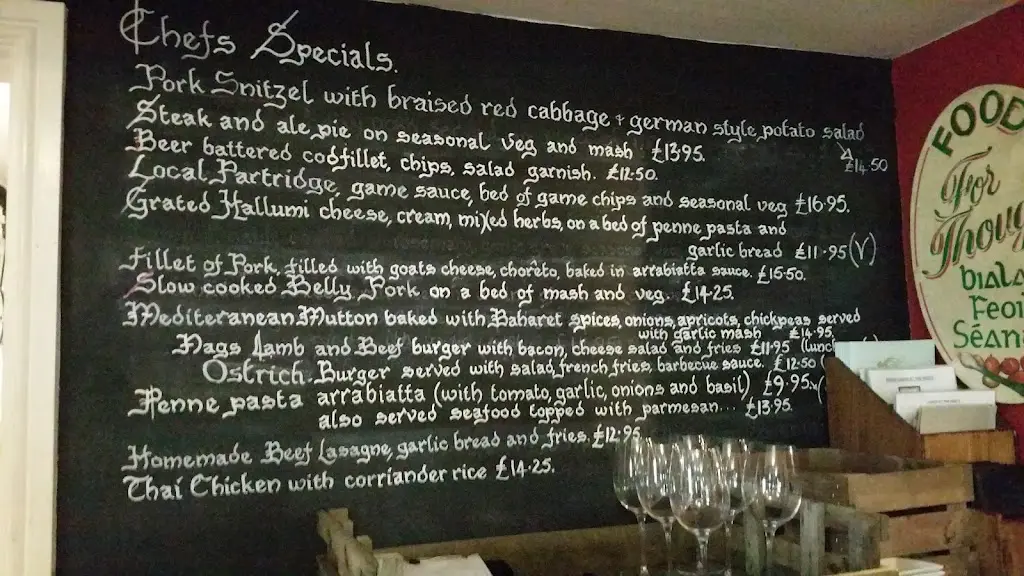 Chefs Specials.
Pork Snitzel with braised red cabbage + german style potato salad
£14.50
Steak and ale pie on seasonal veg and mash £13.95.
Beer battered codfillet, chips, salad garnish. £12.50.
Local Partridge, game sauce, bed of game chips and seasonal veg £16.95.
Grated Hallumi cheese, cream, mixed herbs, on a bed of penne pasta and
garlic bread £11.95 (V)
Fillet of Pork, filled with goats cheese, choréto, baked in arrabiatta sauce. £16.50.
Slow cooked Belly Pork on a bed of mash and veg. £14.25.
Mediteranean Mutton baked with Baharet spices, onions, apricots, chickpeas served
with garlic mash £14.95
Hags Lamb and Beef burger with bacon, cheese salad and fries £11.95 (lunch
Ostrich Burger served with salad, french fries, barbecue sauce. £12.50
Penne pasta arrabiatta (with tomato, garlic, onions and basil) £9.95 v
also served seafood topped with parmesan... £13.95.
Homemade Beef Lasagne, garlic bread and fries. £12.95
Thai Chicken with corriander rice £14.25.
FOOD
For
Thoug
bial
Feoi
Séan